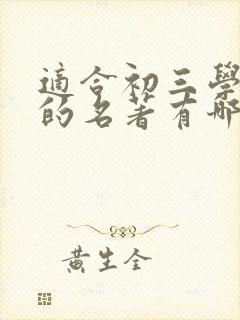 適合初三學
的名著有哪
黃生全